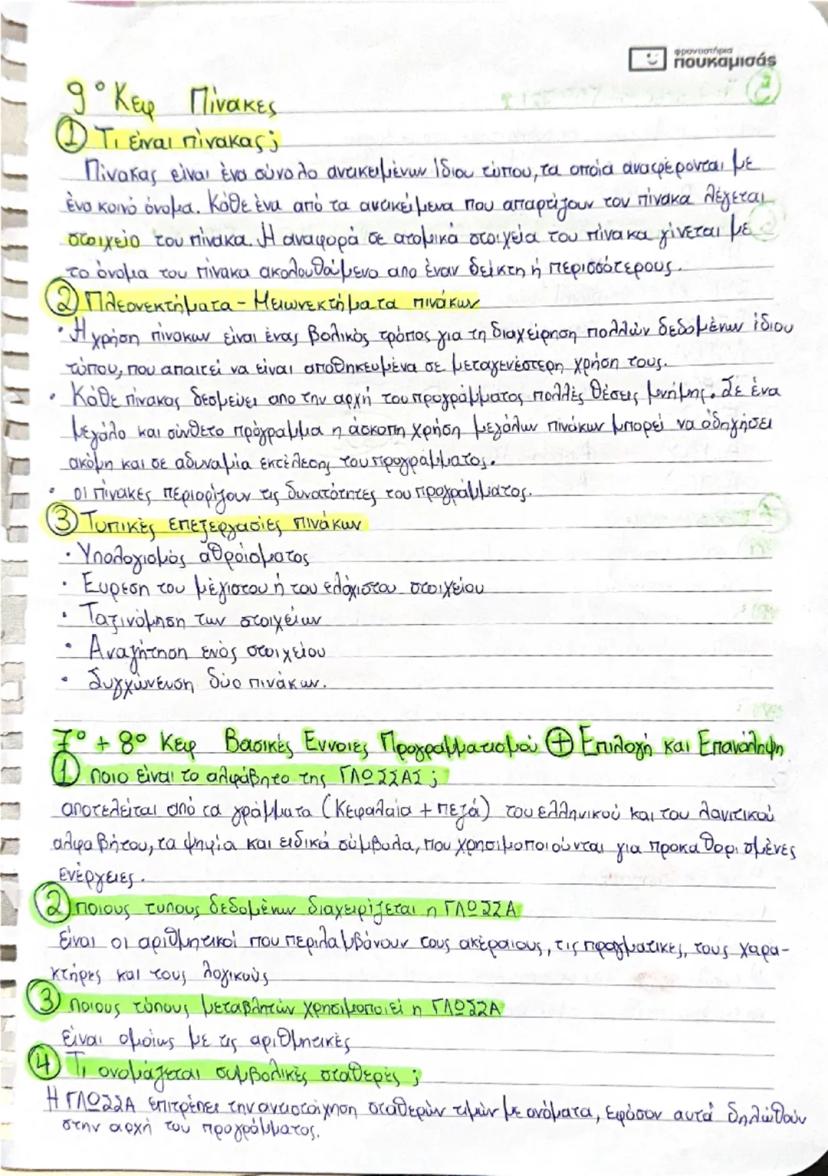 φροντιστήρια
πουκαμισάς
9° Κεφ Πίνακες
① Τι είναι πίνακας;
Πίνακας είναι ένα σύνολο αντικειμένων ίδιου τύπου, τα οποία αναφέρονται με
ένα κοινό όνομα. Κάθε ένα από τα αντικείμενα που απαρτίζουν τον πίνακα λέγεται
στοιχείο του πίνακα. Η αναφορά σε ατομικά στοιχεία του πίνακα γίνεται με
το όνομα του πίνακα ακολουθούμενο απο έναν δείκτη ή περισσότερους.
② Πλεονεκτήματα - Μειωνεκτήματα πινάκων
• Η χρήση πινάκων είναι ένας βολικός τρόπος για τη διαχείρηση πολλών δεδομένων ίδιου
τύπου, που απαιτεί να είναι αποθηκευμένα σε μεταγενέστερη χρήση τους.
• Κάθε πίνακας δεσμεύει απο την αρχή του προγράμματος πολλές θέσεις μνήμης. Σε ένα
μεγάλο και σύνθετο πρόγραμμα η άσκοπη χρήση μεγάλων πινάκων μπορεί να οδηγήσει
ακόμη και σε αδυναμία εκτέλεσης του προγράμματος.
• οι πίνακες περιορίζουν τις δυνατότητες του προγράμματος.
③ Τυπικές επεξεργασίες πινάκων
• Υπολογισμός αθροίσματος
• Ευρεση του μέγιστου ή του ελάχιστου στοιχείου
• Ταξινόμηση των στοιχείων
• Αναζήτηση ενός στοιχείου
• Συγχώνευση δύο πινάκων.
7° + 8° Κεφ Βασικές Εννοιες Προγραμματισμού ⊕ Επιλογή και Επανάληψη
① ποιο είναι το αλφάβητο της ΓΛΩΣΣΑΣ;
αποτελείται από τα γράμματα (Κεφαλαία + πεζά) του ελληνικού και του λαντικού
αλφαβήτου, τα ψηφία και ειδικά σύμβολα, που χρησιμοποιούνται για προκαθορισμένες
ενέργειες.
② ποιους τυπους δεδομένων διαχειρίζεται η ΓΛΩΣΣΑ
Είναι οι αριθμητικοί που περιλαμβάνουν τους ακέραιους, τις πραγματικες, τους χαρα-
κτήρες και τους λογικούς
③ ποιους τύπους μεταβλητών χρησιμοποιεί η ΓΛΩΣΣΑ
είναι ομοίως με τις αριθμητικές
④ Τι ονομάζεται συμβολικές σταθερές;
Η ΓΛΩΣΣΑ επιτρέπει την αντιστοίχηση σταθερών τιμών με ονόματα, εφόσον αυτά δηλωθούν
στην αρχή του προγράμματος.